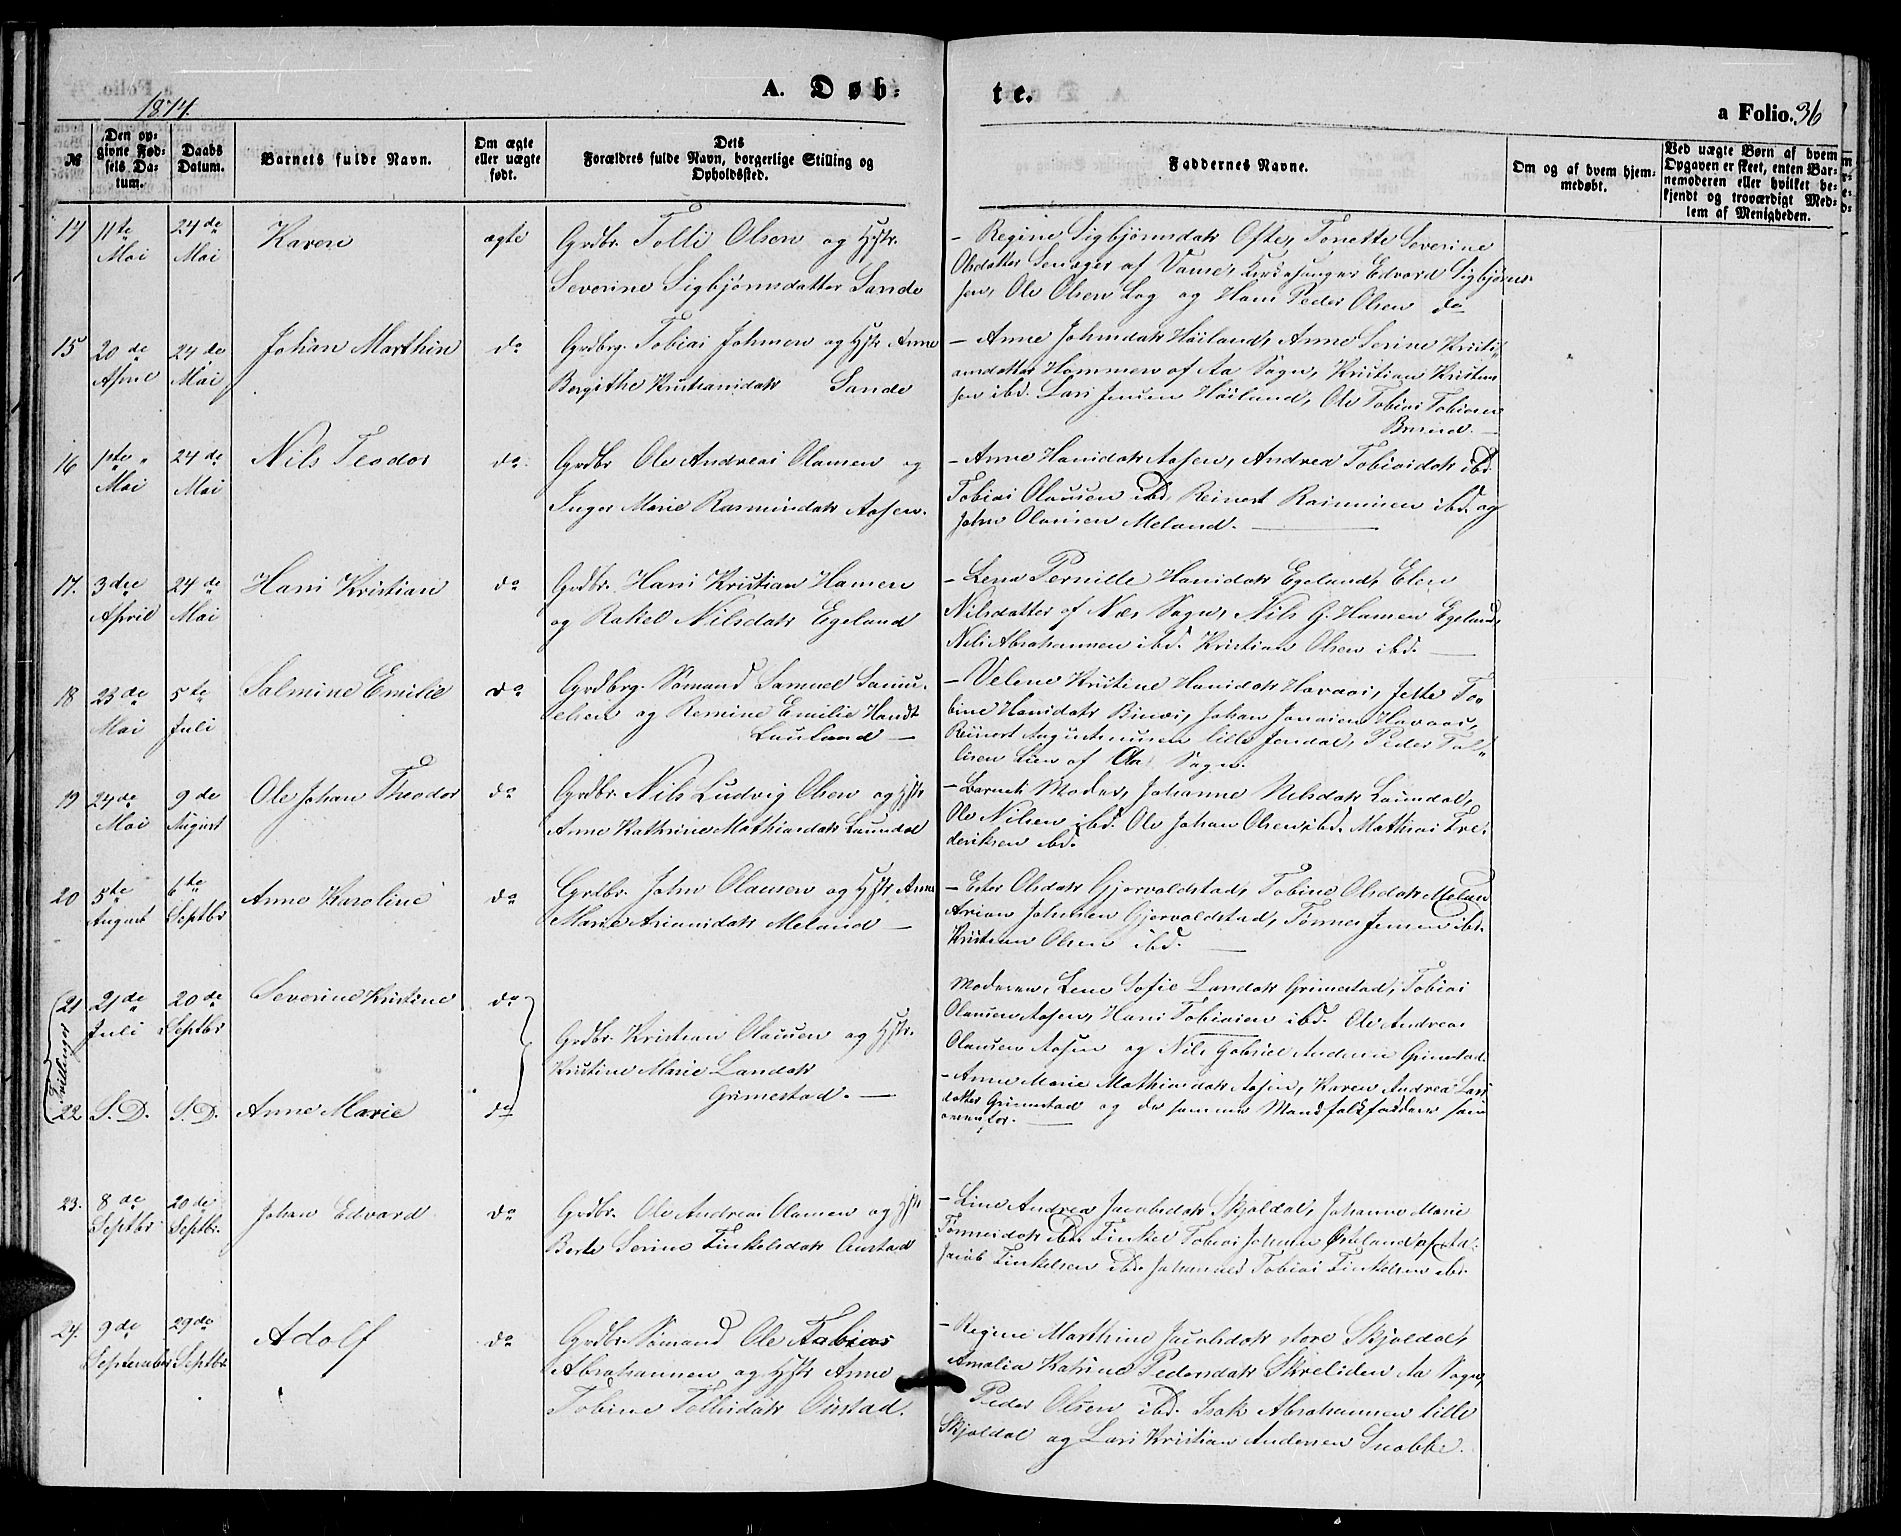 A. Døb-
te.
1874.
a Folio. 36
№
Den op-
givne Fød-
sels Da-
tum.
Daabs
Datum.
Barnets fulde Navn.
Om ægte
eller uægte
født.
Dets
Forældres fulde Navn, borgerlige Stilling og
Opholdssted.
Faddernes Navne.
Om og af hvem hjem-
medøbt.
Ved uægte Børn af hvem
Opgaven er skeet, enten Bar-
nemoderen eller hvilket be-
kjendt og troværdigt Med-
lem af Menigheden.
14 11te Mai 24de Mai Karen ægte
Grdbr. Tolli Olsen og Hstr.
Severine Sigbjørnsdatter Sande
- Regine Sigbjørnsdatr Ofte, Tonette Severine
Olsdatter af Vanse, Kirkesanger Edvard Sigbjørn-
sen, Ole Olsen Log og Hans Peder Olsen do
15 20de April 24de Mai Johan Marthin do
Grdbrg. Tobias Johnsen og Hstr Anne
Bergithe Kristiansdatr Sande
- Anne Johnsdatr Høiland, Anne Serine Kristi-
ansdatter Hommen af Aa Sogn, Kristian Kristen-
sen ibd. Lars Jensen Høiland, Ole Tobias Tobiasen
16 1ste Mai 24de Mai Nils Teodor do
Grdbr Ole Andreas Olausen og
Inger Marie Rasmusdatr Aasen.
- Anne Hansdatr Aasen, Andrea Tobiasdatr ibd.
Tobias Olausen ibd. Reinert Rasmussen ibd. og
John Olausen Meland.
17. 3die April 24de Mai Hans Kristian do
Grdbr. Hans Kristian Hansen
og Rakel Nilsdatr Egeland
- Lena Pernille Hansdatr Egeland, Elen
Nilsdatter af Næs Sogn, Nils G. Hansen Egeland,
Nils Abrahamsen ibd. Kristian Olsen ibd.
18 23de Mai 5te Juli Salmine Emilie do
Grdbrg. Sømand Samuel Samu-
elsen og Remine Emilie Handt
Lauland
- Velene Kristine Hansdatr Havaas, Jette To-
bine Hansdatr Johan Jonasen Havaas,
Reinert Augustinussen lille Jendal, Peder Tol-
lisen Lien af Aa Sogn.
19 24de Mai 9de August Ole Johan Theodor do
Grdbr. Nils Ludvig Olsen og Hstr
Anne Kathrine Mathiasdatr Laundal
- Barnets Moder, Johanne Nilsdatr Laundal,
Ole Nilsen ibd. Ole Johan Olsen ibd. Mathias Fre-
deriksen ibd.
20 5te August 6te Septbr Anne Karoline do
Grdbr. John Olausen og Hstr. Anne
Marie Ariansdatr Meland
- Ester Olsdatr Gjervoldstad, Tobine Olsdatr Melan
Arian Johnsen Gjervoldstad, Tønnes Jensen ibd.
Kristian Olsen ibd.
21 21de Juli 20de Septbr Severine Kristine do
Tvillinger
Grdbr. Kristian Olausen og Hstr.
Kristine Marie Larsdatr
Grimestad.
Moderen, Lene Sofie Larsdatr Grimestad, Tobias
Olausen Aasen, Hans Tobiasen ibd. Ole Andreas
Olausen Aasen og Nils Gabriel Andersen Grimestad.
22 S.D. S.D. Anne Marie do
- Anne Marie Mathiasdatr Aasen, Karen Andrea Lars
datter Grimestad og de samme Mandfolkfaddere som
ovenfor.
23. 8de Septbr 20de Septbr. Johan Edvard do
Grdbr. Ole Andreas Olausen og Hstr
Berte Serine Tinkelsdatr Oustad
- Line Andrea Jacobsdatr Skjoldal, Johanne Marie
Tønnesdatr ibd. Tinkel Tobias Johnsen Øieland af Aa.
Jacob Tinkelsen ibd. Johannes Tobias Tinkelsen ibd.
24. 9de September 29de Septbr. Adolf do
Grdbr. Sømand Ole Tobias
Abrahamsen og Hstr Anne
Tobine Tollisdatr Oustad.
- Regine Marthine Jacobsdatr store Skjoldal,
Amalia Katrine Pedersdatr Skreliden Aa Sogn,
Peder Olsen ibd. Isak Abrahamsen lille
Skjoldal og Lars Kristian Andersen Snobbe.